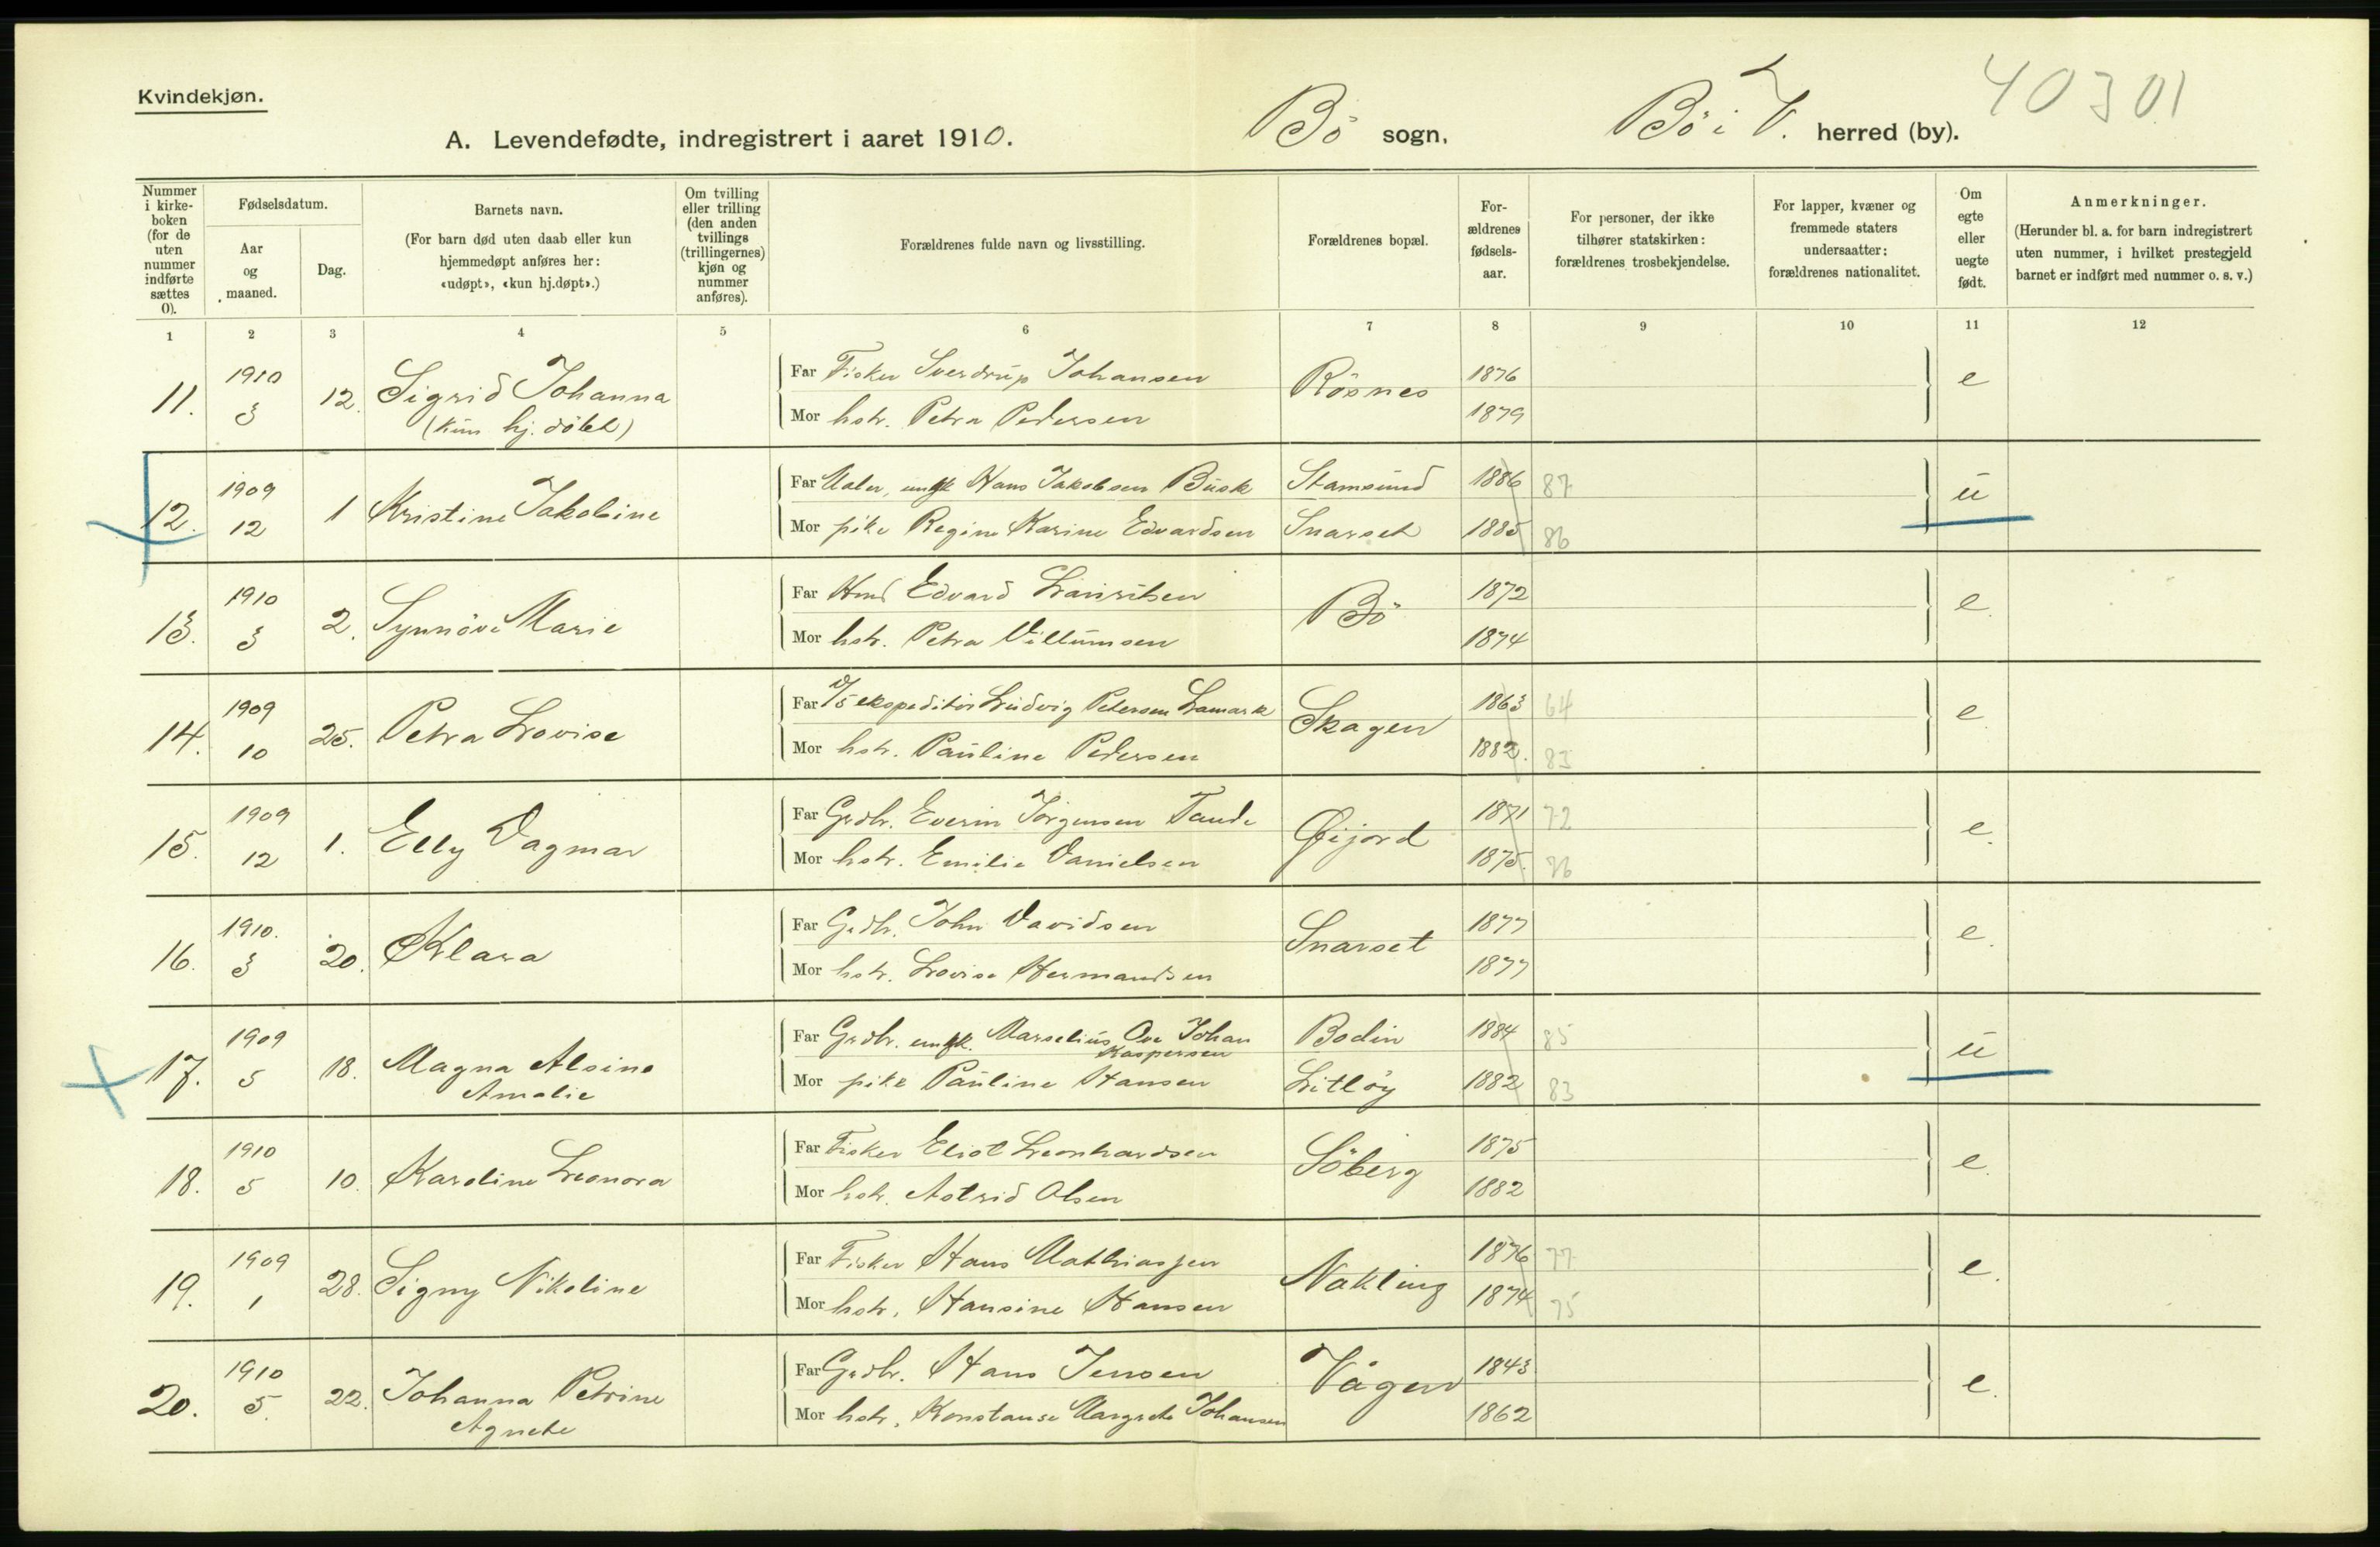 Kvindekjøn.
A. Levendefødte, indregistrert i aaret 1910.
Bö sogn, Bö i V. herred (by).
40301
Nummer i kirke-boken (for de uten nummer indførte sættes 0).
Fødselsdatum.
Aar og maaned.
Dag.
Barnets navn.
(For barn død uten daab eller kun hjemmedøpt anføres her: «udøpt», «kun hj.døpt».)
Om tvilling eller trilling (den anden tvillings (trillingernes) kjøn og nummer anføres).
Forældrenes fulde navn og livsstilling.
Forældrenes bopæl.
For-ældrenes fødsels-aar.
For personer, der ikke tilhører statskirken: forældrenes trosbekjendelse.
For lapper, kvæner og fremmede staters undersaatter: forældrenes nationalitet.
Om egte eller uegte født.
Anmerkninger.
(Herunder bl. a. for barn indregistrert uten nummer, i hvilket prestegjeld barnet er indført med nummer o. s. v.)
1 2 3 4 5 6 7 8 9 10 11 12
11. 1910 3 12. Sigrid Johanna (kun hj. döbt)
Far Fisker Sverdrup Johansen Rösnes 1876 e
Mor hstr. Petra Pedersen 1879
12. 1909 12 1 Kristine Jakobine
Far Maler, ungk Hans Jakobsen Busk Stamsund 1886 87 u
Mor pike Regine Karine Edvardsen Snarset 1885 86
13. 1910 3 2. Synnöve Marie
Far Hmd Edvard Lauritsen Bö 1872 e.
Mor hstr. Petra Villumsen 1874
14. 1909 10 25. Petra Lovise
Far D/S ekspeditör Ludvig Petersen Lamark Skagen 1863 64 e
Mor hstr. Pauline Pedersen 1882. 83
15. 1909 12 1. Elly Dagmar
Far Grdbr. Everin Jörgensen Tande Øijord 1871 72 e.
Mor hstr. Emilie Danielsen 1875. 76
16. 1910. 3 20. Klara
Far Grdbr. John Davidsen Snarset 1877 e.
Mor hstr. Lovise Hermandsen 1877
17. 1909 5 18. Magna Alsine Amalie
Far Grdbr. ungk. Marselius Ove Johan Kaspersen Bodin 1884 85 u
Mor pike Pauline Hansen Litløy 1882 83
18. 1910 5 10. Karoline Leonora
Far Fisker Eliot Leonhardsen Söberg 1875 e.
Mor hstr. Astrid Olsen 1882
19. 1909 1 28. Signy Nikoline
Far Fisker Hans Mathiassen Nakling 1876 77 e.
Mor hstr. Hansine Hansen 1874 75
20. 1910 5. 22. Johanna Petrine Agnete
Far Grdbr. Hans Jensen Vågen 1843 e.
Mor hstr. Konstanse Margrete Johansen 1862